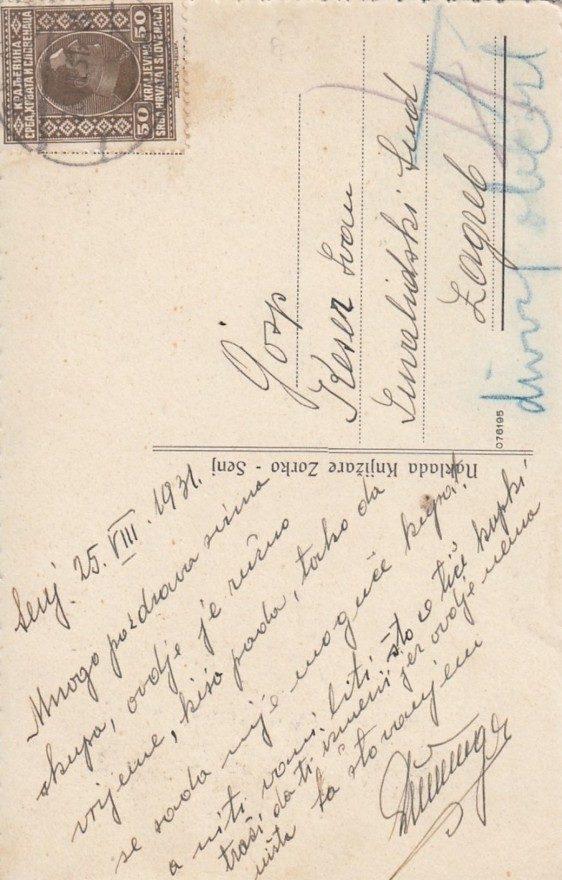 50 КРАЉЕВИНА СРБА, ХРВАТА И СЛОВЕНАЦА
KRALJEVINA SRBA, HRVATA I SLOVENACA 50
Gosp
Keser Ivan
Invalidski Sud
Zagreb
076195
Naklada Knjižare Zorko - Senj
Senj 25. VIII. 1931.
Mnogo pozdrava svima
skupa, ovdje je ružno
vrijeme, kiša pada, tako da
se sada nije moguće kupat!
a niti vani biti. Što se tiče kupki
traži da ti izmeni jer ovdje nema
ništa sa štovanjem